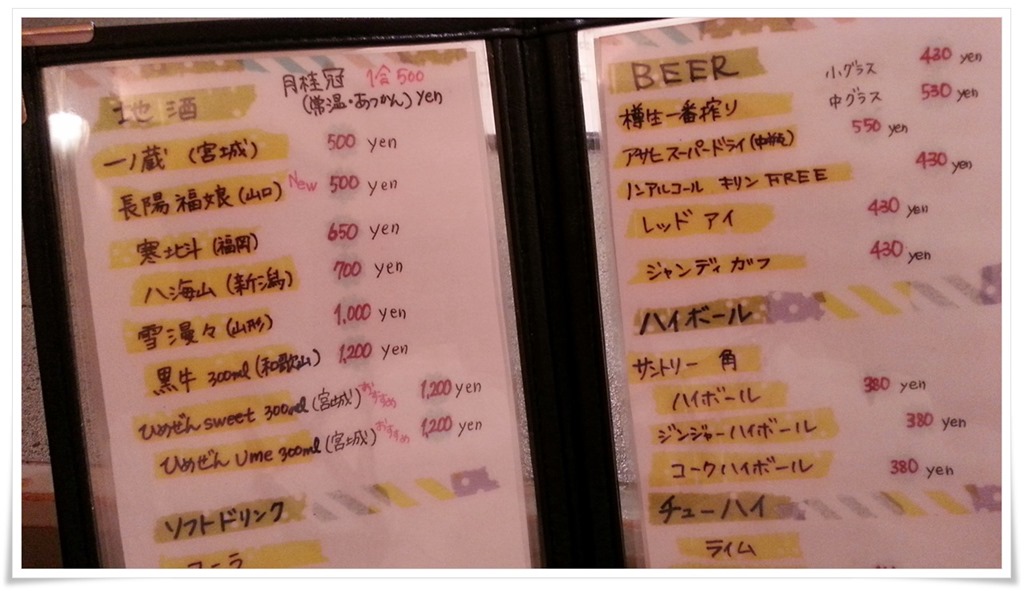 地酒
月桂冠 1合 500
(常温・あつかん) yen
一ノ蔵 (宮城) 500 yen
長陽福娘 (山口) New 500 yen
寒北斗 (福岡) 650 yen
八海山 (新潟) 700 yen
雪漫々 (山形) 1,000 yen
黒牛 300ml (和歌山) 1,200 yen
ひめぜん sweet 300ml (宮城) おすすめ 1,200 yen
ひめぜん Ume 300ml (宮城) おすすめ 1,200 yen
ソフトドリンク
コーラ
BEER
小グラス 430 yen
樽生一番搾り 中グラス 530 yen
アサヒスーパードライ (中瓶) 550 yen
ノンアルコール キリン FREE 430 yen
レッド アイ 430 yen
シャンディ ガフ 430 yen
ハイボール
サントリー 角
ハイボール 380 yen
ジンジャーハイボール 380 yen
コークハイボール 380 yen
チューハイ
ライム